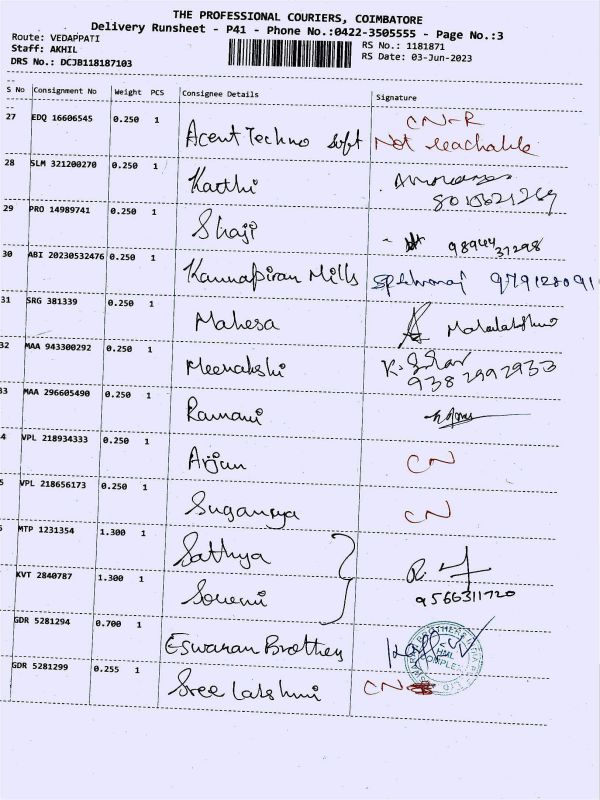 THE PROFESSIONAL COURIERS, COIMBATORE
Delivery Runsheet - P41 - Phone No.:0422-3505555 - Page No.:3
Route: VEDAPPATI
Staff: AKHIL
DRS No.: DCJB118187103
RS No.: 1181871
RS Date: 03-Jun-2023
S No Consignment No Weight PCS Consignee Details Signature
27 EDQ 16606545 0.250 1 Acent Techno Soft CN-R
Not reachable
28 SLM 321200270 0.250 1 Karthi
8015621269
29 PRO 14989741 0.250 1 Shaji 9894431298
30 ABI 20230532476 0.250 1 Kannapiran Mills 979128091
31 SRG 381339 0.250 1 Mahesa Mahalakshmi
32 MAA 943300292 0.250 1 Meenakshi
9382992933
33 MAA 296605490 0.250 1 Ramani
4 VPL 218934333 0.250 1 Arjun CN
5 VPL 218656173 0.250 1 Suganya CN
MTP 1231354 1.300 1 Sathya
KVT 2840787 1.300 1 Sowmi 9566311720
GDR 5281294 0.700 1 Eswaran Brothers
GDR 5281299 0.255 1 Sree Lakshmi CN